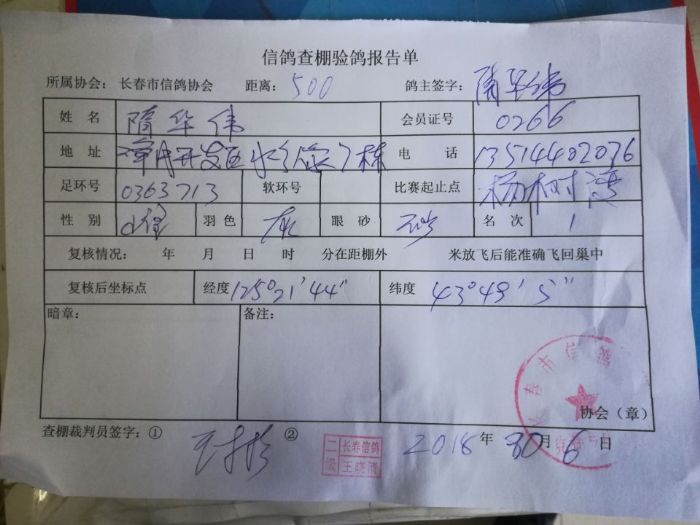 信鸽查棚验鸽报告单
所属协会：长春市信鸽协会 距离：500 鸽主签字：隋华伟
姓 名 隋华伟 会员证号 0266
地 址 开发区 栋 电 话 13514402036
足环号 0363713 软环号 比赛起止点 杨树湾
性 别 羽色 灰 眼 砂 名 次 1
复核情况： 年 月 日 时 分在距棚外 米放飞后能准确飞回巢中
复核后坐标点 经度 125°21′44″ 纬度 43°49′5″
暗章： 备注：
长春市信鸽
协会（章）
查棚裁判员签字：① ②
二级 长春信鸽
2018 年 月 6 日